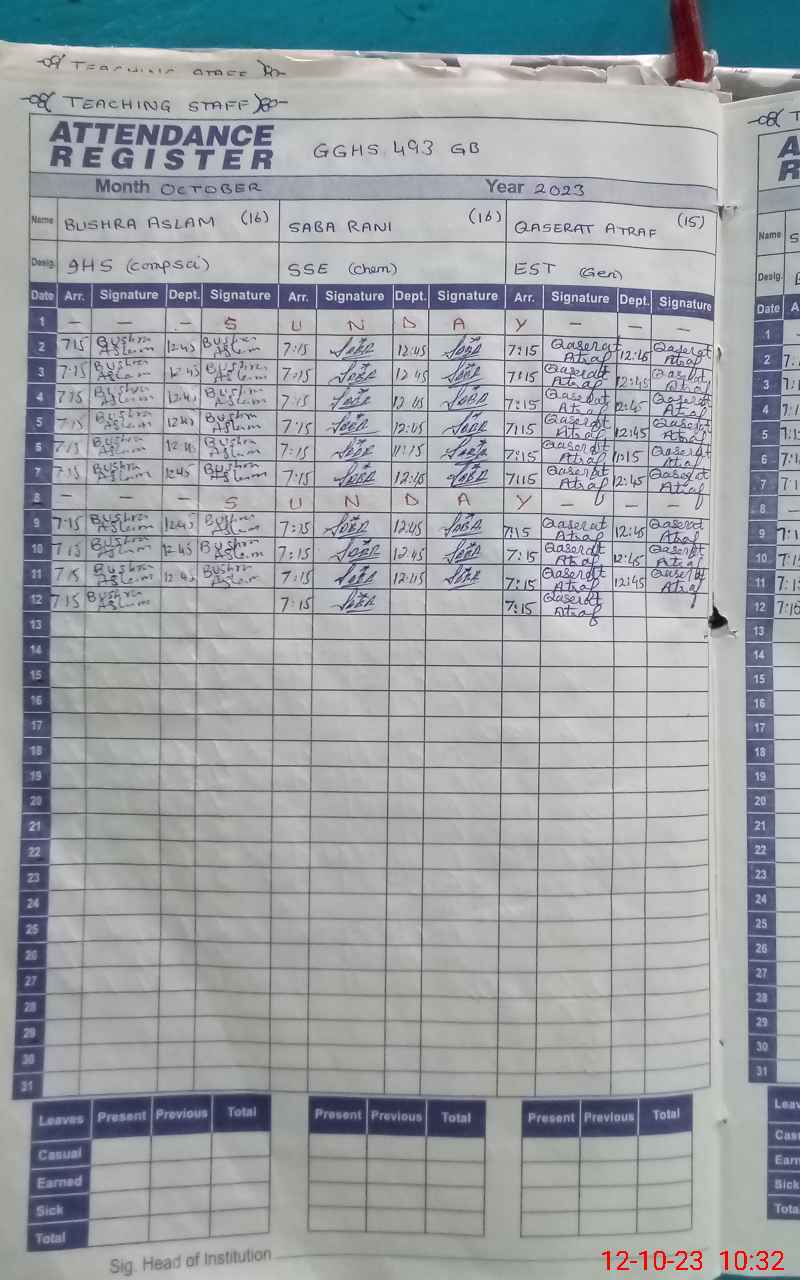 TEACHING STAFF
TEACHING STAFF
ATTENDANCE
REGISTER GGHS 493 GB
Month OCTOBER Year 2023
Name BUSHRA ASLAM (16) SABA RANI (16) QASERAT ATRAF (15)
Desig. (compsci) SSE (chem) EST (Gen)
Date Arr. Signature Dept. Signature Arr. Signature Dept. Signature Arr. Signature Dept. Signature
1 — — — S U N D A Y — — —
2 715 Bushra Aslam 12:45 Bushra Aslam 7:15 SABA 12:45 SABA 7:15 Qaserat Atraf 12:45 Qaserat Atraf
3 7:15 Bushra Aslam 12:45 Bushra Aslam 7:15 SABA 12:45 SABA 7:15 Qaserat Atraf 12:45 Qaserat Atraf
4 7:15 Bushra Aslam 12:45 Bushra Aslam 7:15 SABA 12:45 SABA 7:15 Qaserat Atraf 12:45 Qaserat Atraf
5 7:15 Bushra Aslam 12:45 Bushra Aslam 7:15 SABA 12:45 SABA 7:15 Qaserat Atraf 12:45 Qaserat Atraf
6 7:15 Bushra Aslam Bushra Aslam 7:15 SABA 11:15 SABA 7:15 Qaserat Atraf 11:15 Qaserat Atraf
7 7:15 Bushra Aslam 12:45 Bushra Aslam 7:15 SABA 12:45 SABA 7:15 Qaserat Atraf 12:45 Qaserat Atraf
8 — — — S U N D A Y — — —
9 7:15 Bushra Aslam 12:45 Bushra Aslam 7:15 SABA 12:45 SABA 7:15 Qaserat Atraf 12:45 Qaserat Atraf
10 7:15 Bushra Aslam 12:45 Bushra Aslam 7:15 SABA 12:45 SABA 7:15 Qaserat Atraf 12:45 Qaserat Atraf
11 7:15 Bushra Aslam 12:45 Bushra Aslam 7:15 SABA 12:45 SABA 7:15 Qaserat Atraf 12:45 Qaserat Atraf
12 7:15 Bushra Aslam 7:15 SABA 7:15 Qaserat Atraf
13
14
15
16
17
18
19
20
21
22
23
24
25
26
27
28
29
30
31
Leaves Present Previous Total Present Previous Total Present Previous Total
Casual
Earned
Sick
Total
Sig. Head of Institution
Name
Desig.
Date A
1
2 7:
3 7:1
4 7:1
5 7:1
6 7:1
7 7:1
8 —
9 7:1
10 7:1
11 7:1
12 7:16
13
14
15
16
17
18
19
20
21
22
23
24
25
26
27
28
29
30
31
Leav
Casu
Earn
Sick
Tota
12-10-23 10:32